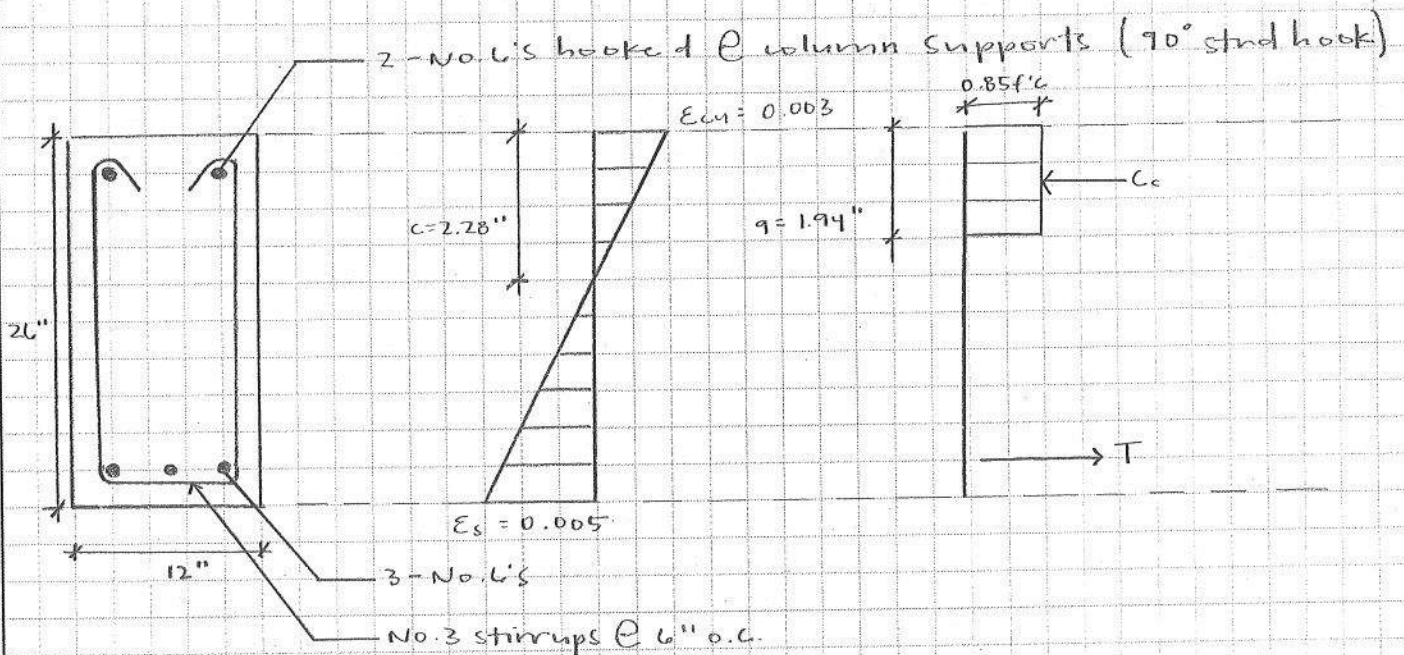 2-No.6's hooked @ column supports (90° stnd hook)
0.85f'c
εcu = 0.003
Cc
c=2.28"
a = 1.94"
26"
T
εs = 0.005
12"
3-No.6's
No.3 stirrups @ 6" o.c.